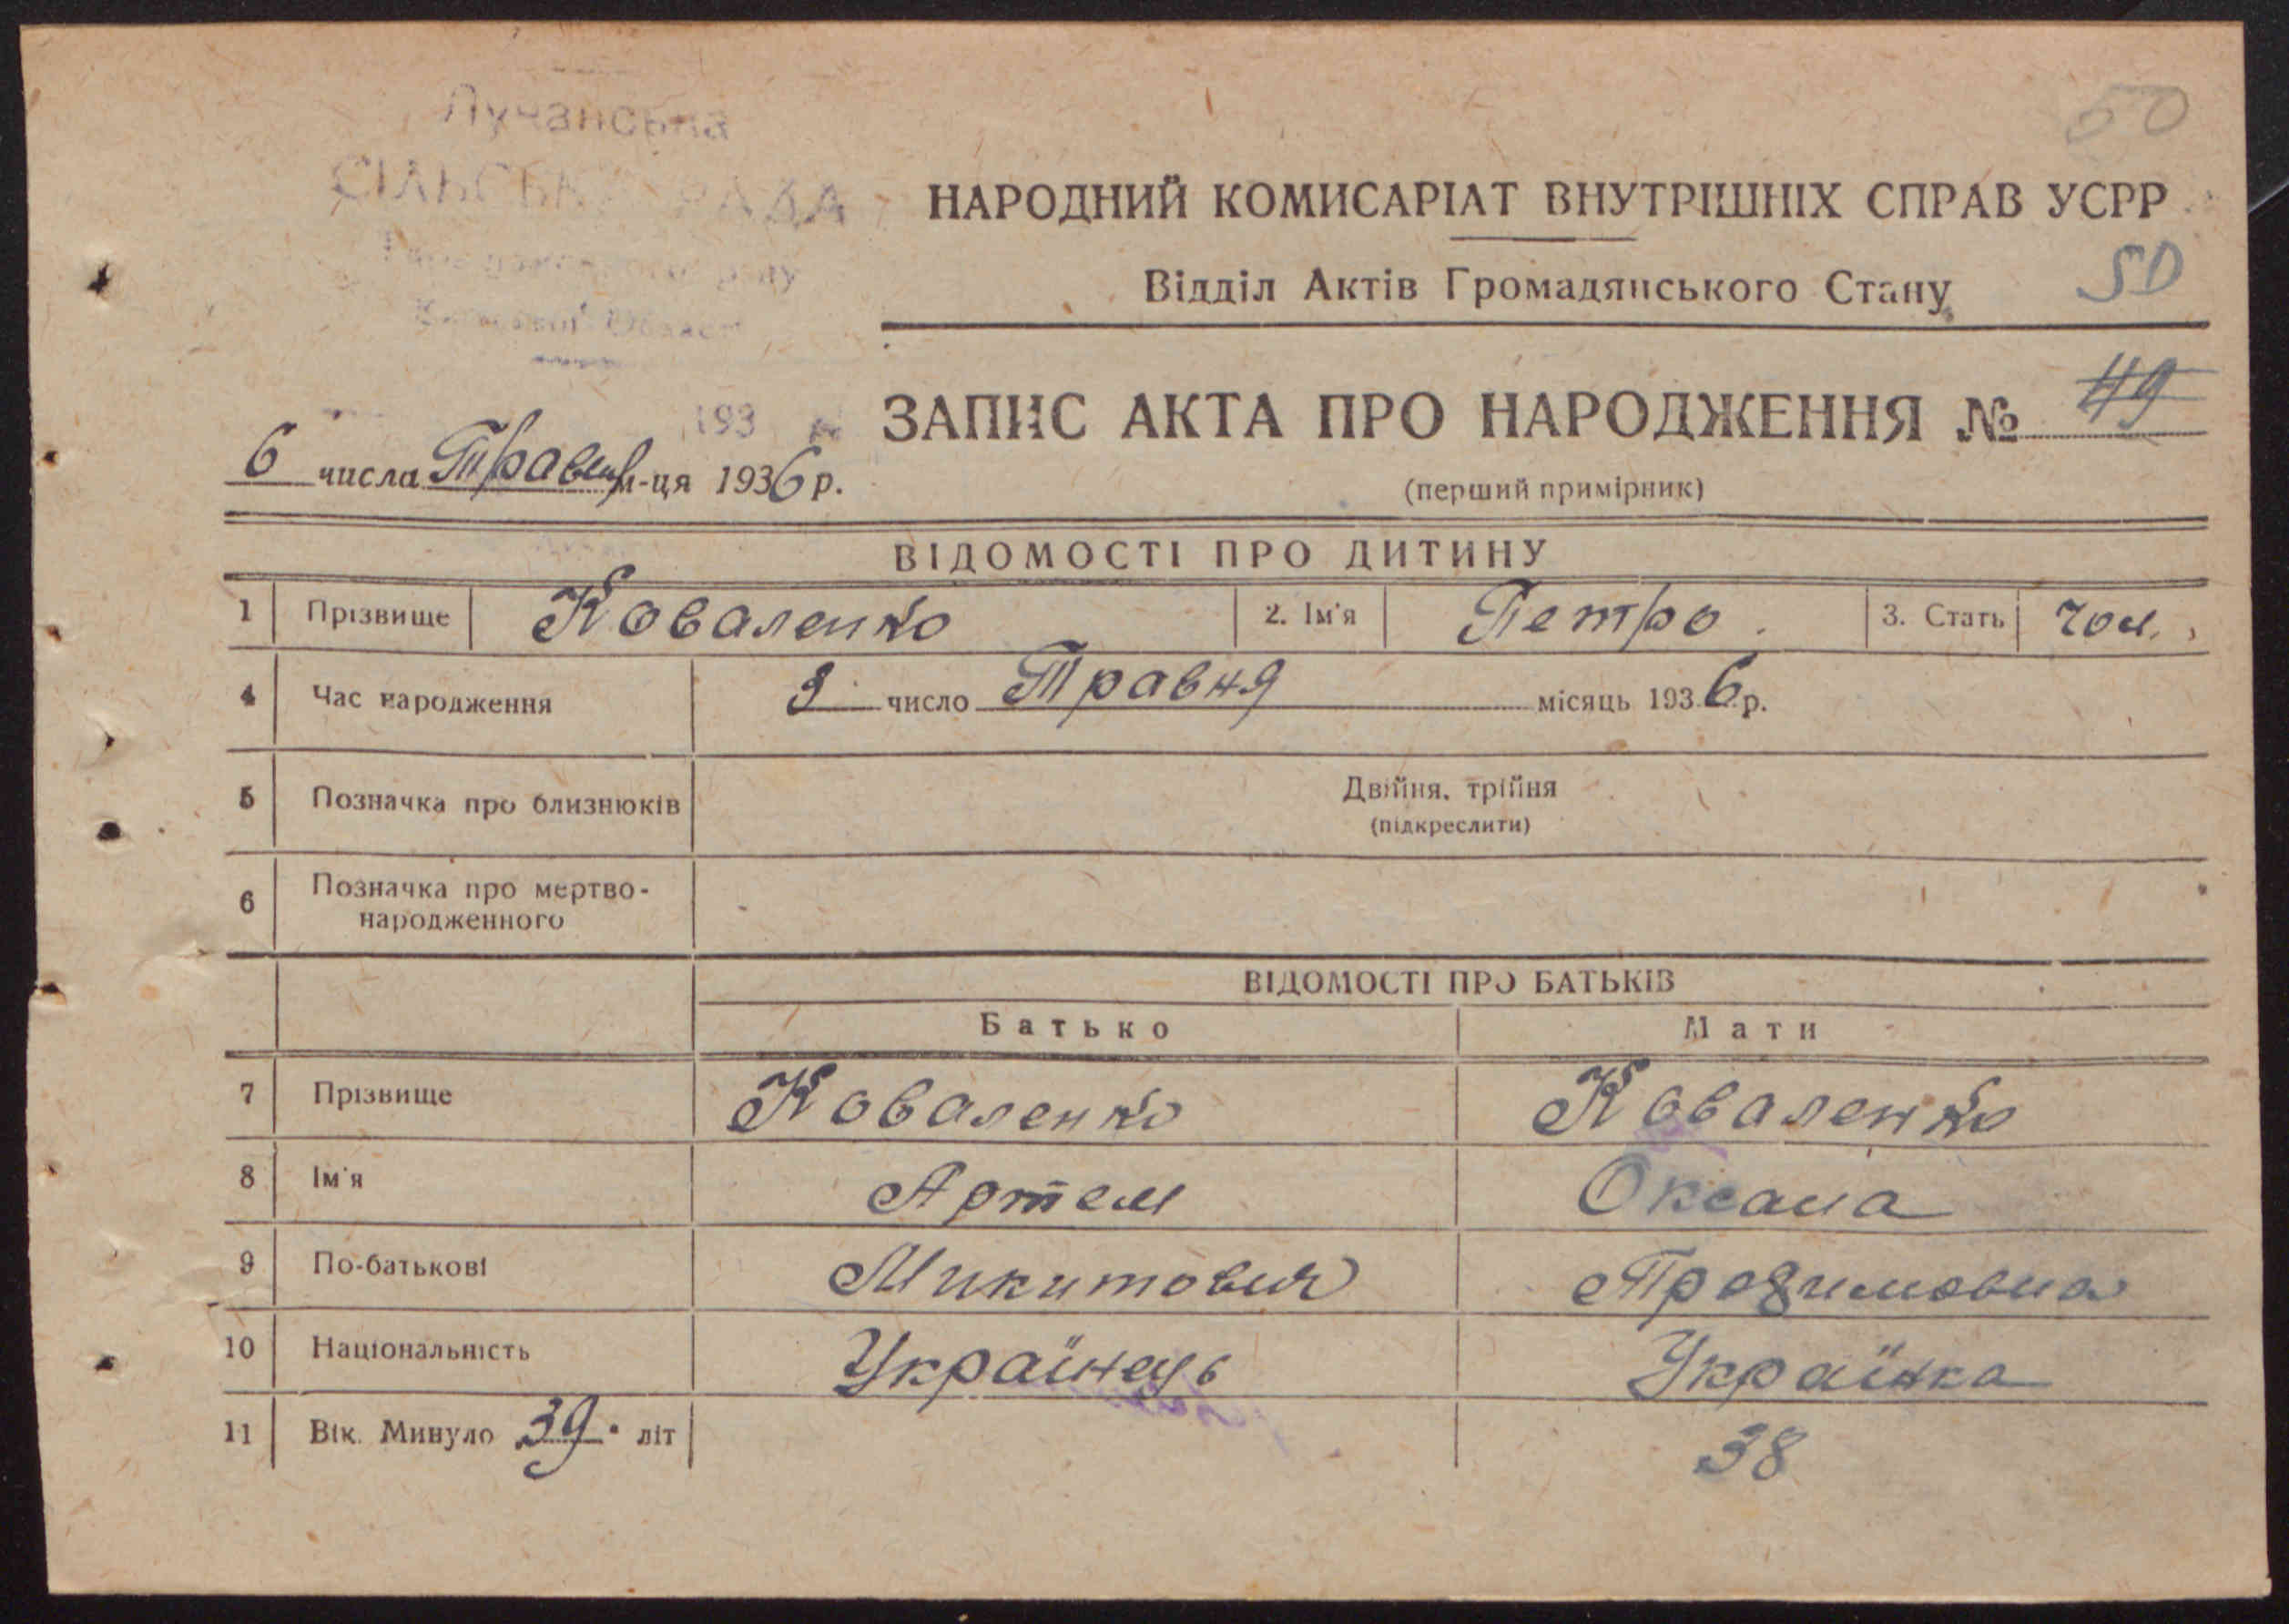 Лучанська
СІЛЬСЬКА РАДА
50
НАРОДНИЙ КОМИСАРІАТ ВНУТРІШНІХ СПРАВ УСРР
Відділ Актів Громадянського Стану
50
193
ЗАПИС АКТА ПРО НАРОДЖЕННЯ № 49
6 числа Травня м-ця 1936 р.
(перший примірник)
ВІДОМОСТІ ПРО ДИТИНУ
1 Прізвище Коваленко 2. Ім'я Петро 3. Стать чол.
4 Час народження число Травня місяць 1936 р.
5 Позначка про близнюків Двійня, трійня
(підкреслити)
6 Позначка про мертво-
народженного
ВІДОМОСТІ ПРО БАТЬКІВ
Батько Мати
7 Прізвище Коваленко Коваленко
8 Ім'я Артем Оксана
9 По-батькові Микитович
10 Національність Українець Українка
11 Вік. Минуло 39 літ 38